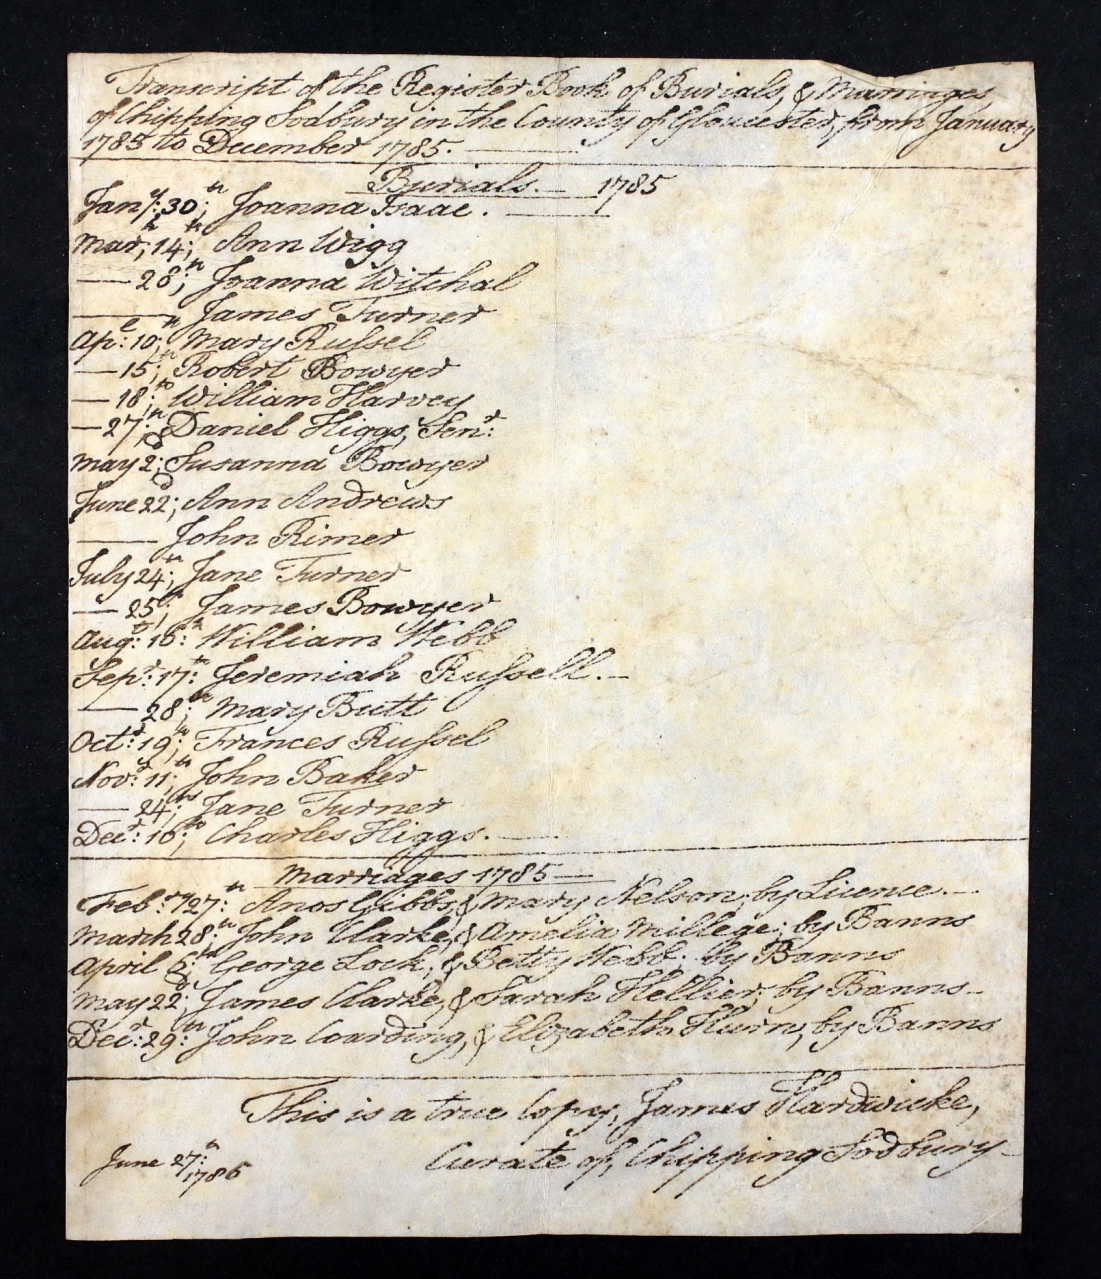 Transcript of the Register Book of Burials, & Marriages,
of Chipping Sodbury in the County of Gloucester, from January
1785 to December 1785.
Burials. 1785
Jany: 30th; Joanna Isaac.
Marh, 14th; Ann Wigg
— 28th; Joanna Witchal
— James Turner
Ape: 10th; Mary Russel
— 15th; Robert Bowyer
— 18th: William Harvey
— 27th: Daniel Higgs, Senr:
May 2d; Susanna Bowyer
June 22d; Ann Andrews
— John Rimer
July 24th; Jane Turner
— 25th; James Bowyer
Augt: 16th: William Webb
Sepr: 17th: Jeremiah Russell.
— 28th; Mary Butt
Octr: 19th; Frances Russel
Novr: 11th; John Baker
— 24th; Jane Turner
Decr: 16th; Charles Higgs.
Marriages 1785
Febry: 27th: Anos Gibbs, & Mary Nelson, by Licence.
March 28th; John Clarke, & Amelia Millege; by Banns
April 6th; George Lock, & Betty Webb. by Banns
May 22d; James Clarke, & Sarah Hellier, by Banns
Decr: 29th: John Coarding, & Elizabeth Hurn, by Banns
This is a true Copy, James Hardwicke,
Curate of, Chipping Sodbury
June 27th:
1786